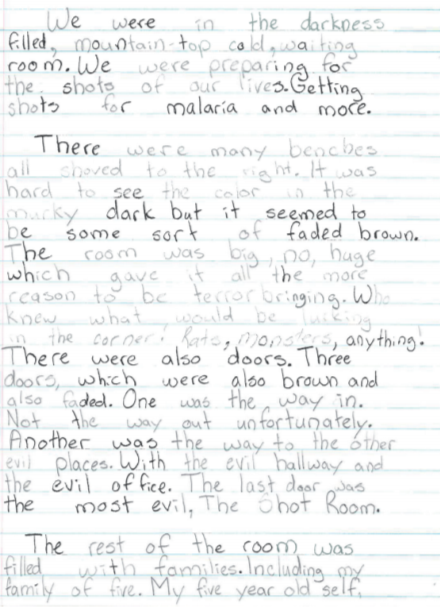 We were in the darkness
filled, mountain-top cold, waiting
room. We were preparing for
the shots of our lives. Getting
shots for malaria and more.
There were many benches
all shoved to the right. It was
hard to see the color in the
murky dark but it seemed to
be some sort of faded brown.
The room was big, no, huge
which gave it all the more
reason to be terror bringing. Who
knew what would be lurking
in the corner. Rats, monsters, anything!
There were also doors. Three
doors, which were also brown and
also faded. One was the way in.
Not the way out unfortunately.
Another was the way to the other
evil places. With the evil hallway and
the evil office. The last door was
the most evil, The Shot Room.
The rest of the room was
filled with families. Including my
family of five. My five year old self,